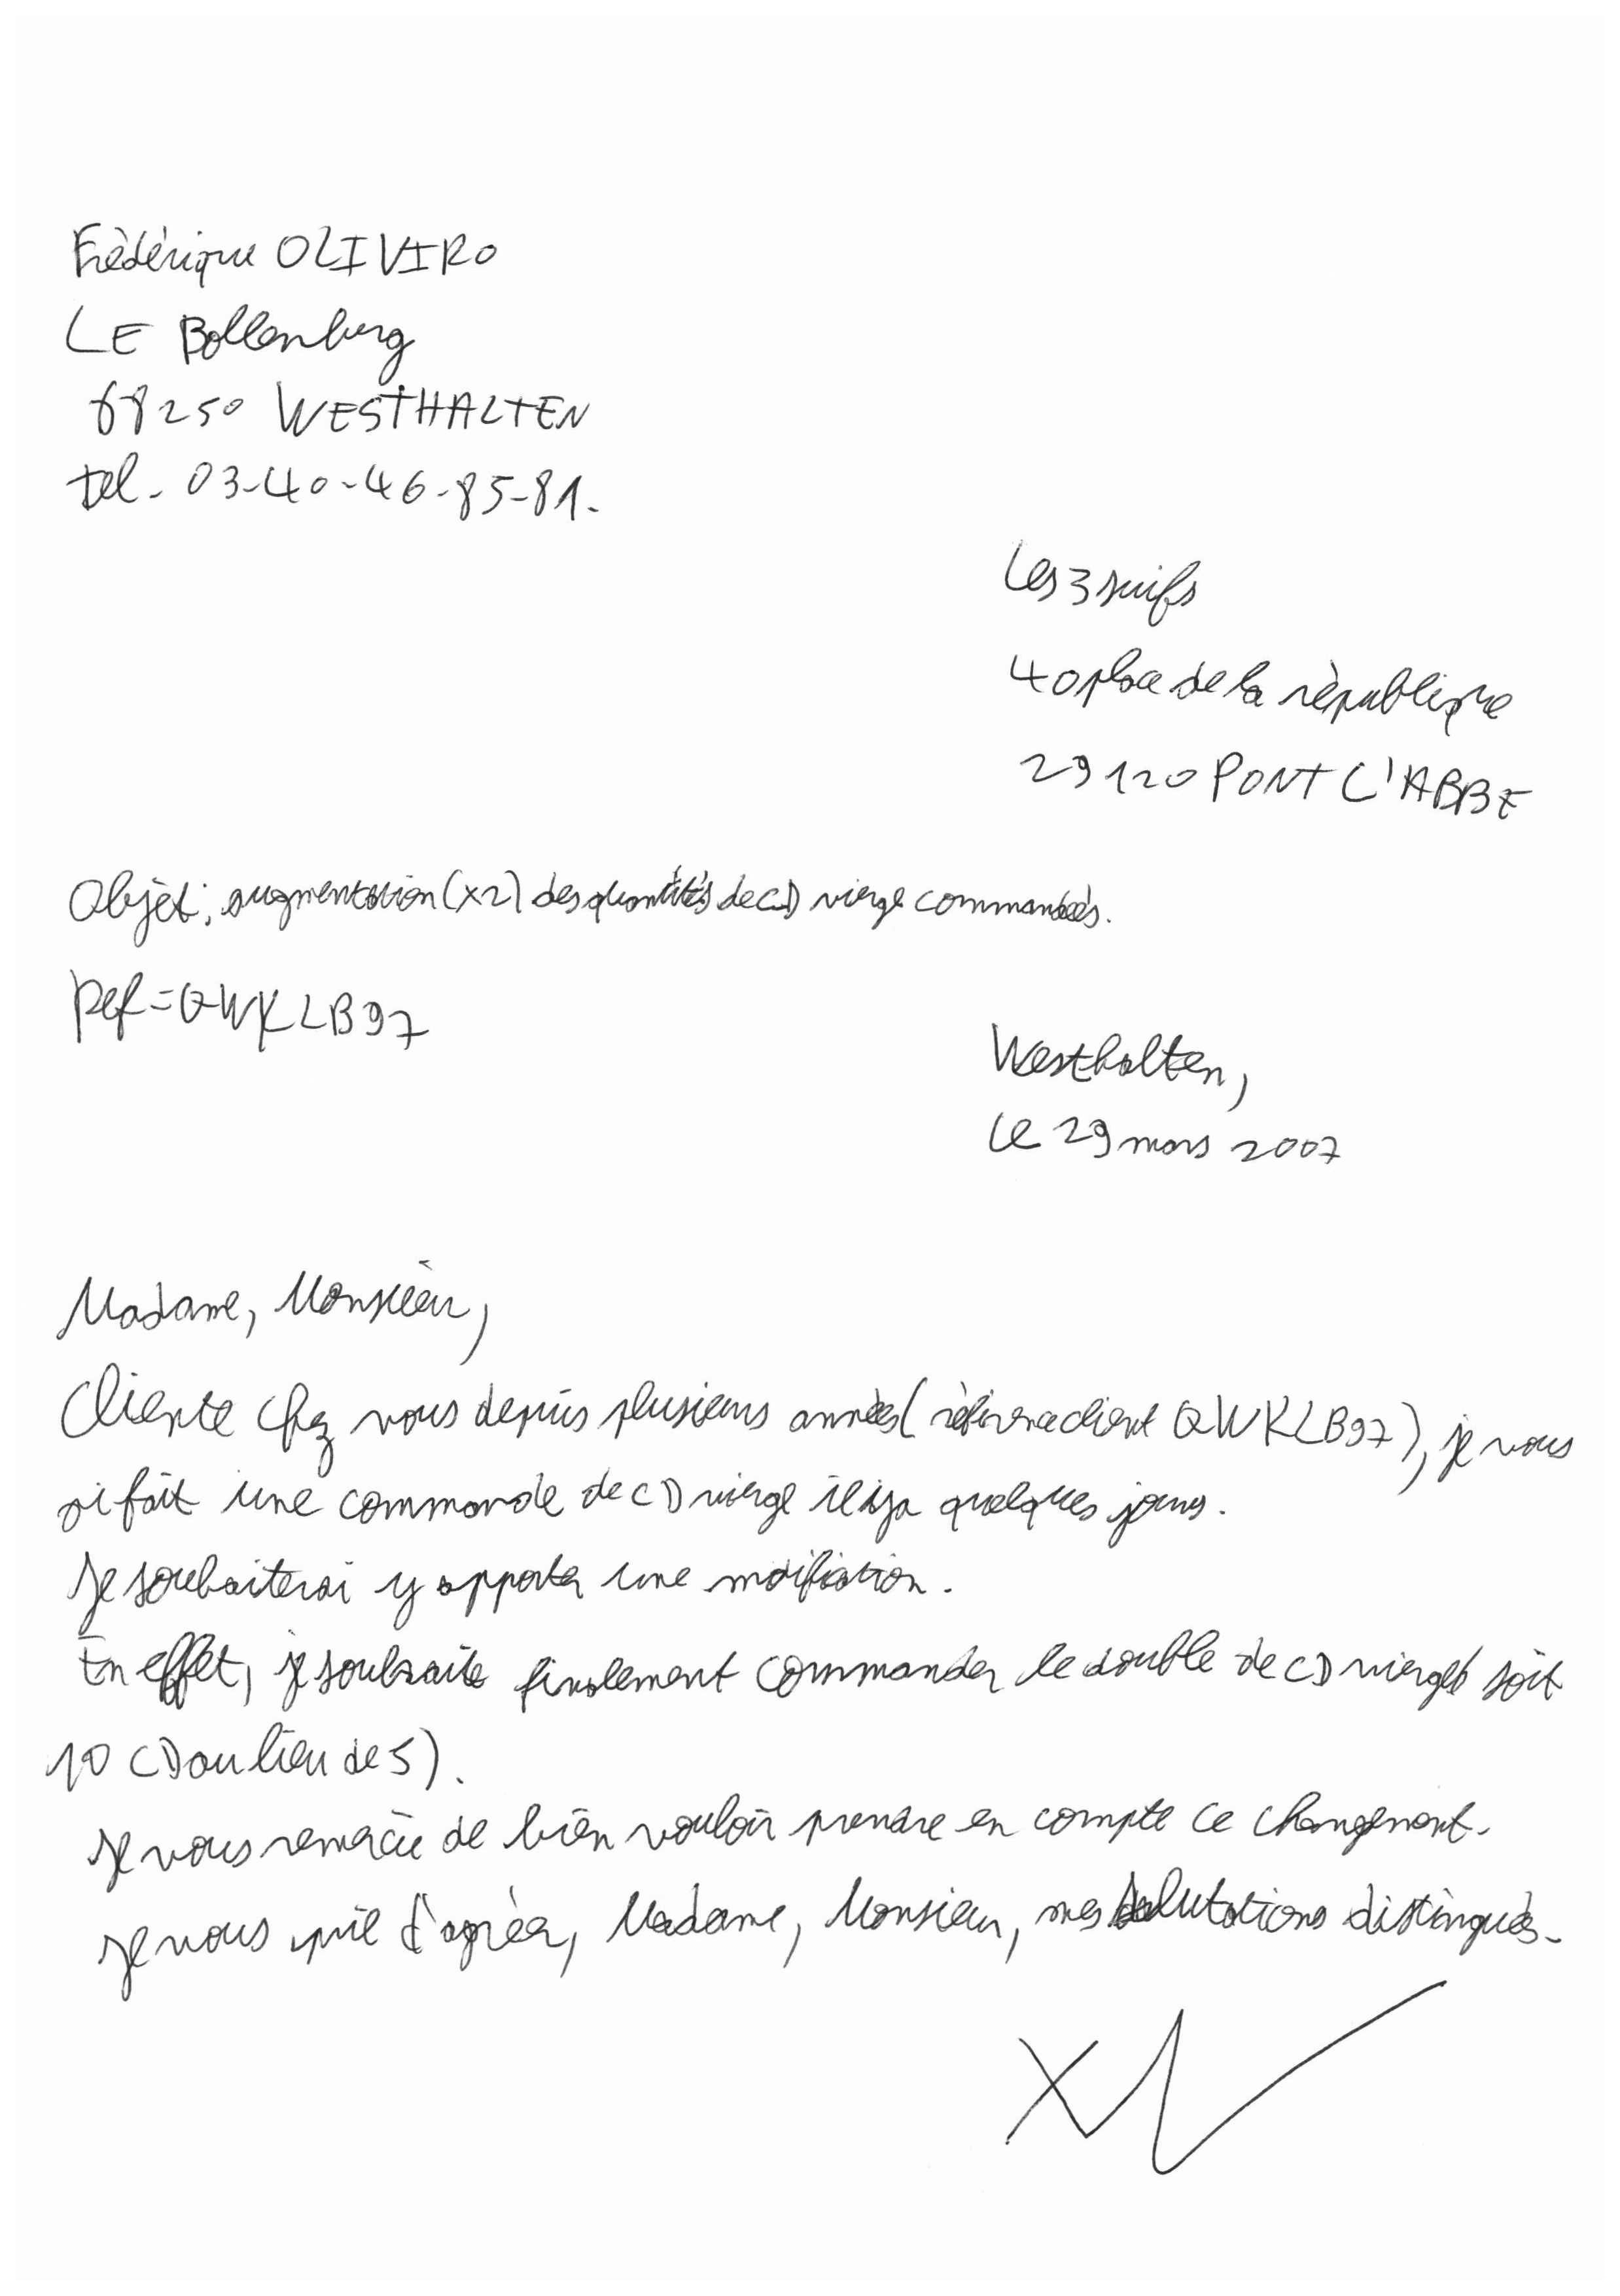 Frédérique OLIVIRO
LE Bollenberg
68250 WESTHALTEN
tel. 03-40-46-85-81.
Les 3 suifs
40 place de la république
29120 PONT L'ABBE
Objet: augmentation (x2) des quantités de CD vierge commandés.
Ref=QWKLB97
Westhalten,
Le 29 mars 2007
Madame, Monsieur,
Cliente chez vous depuis plusieurs années (référence client QWKLB97), je vous
ai fait une commande de CD vierge il y a quelques jours.
Je souhaiterai y apporter une modification.
En effet, je souhaite finalement commander le double de CD vierges soit
10 CD au lieu de 5).
Je vous remercie de bien vouloir prendre en compte ce changement.
Je vous prie d'agréer, Madame, Monsieur, mes salutations distingués.